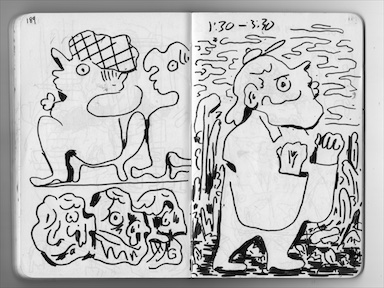 189
1:30 - 3:30